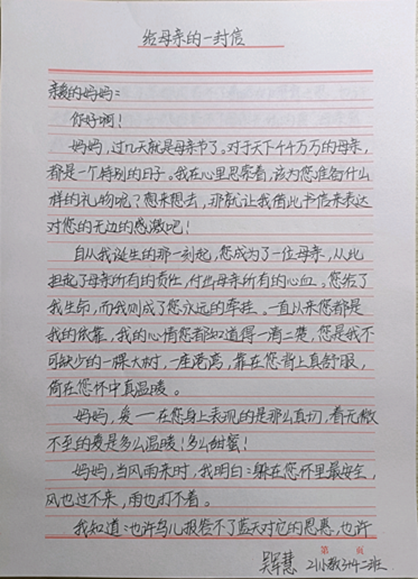 给母亲的一封信
亲爱的妈妈：
你好啊！
妈妈，过几天就是母亲节了。对于天下千千万万的母亲，
都是一个特别的日子。我在心里思索着，该为您准备什么
样的礼物呢？想来想去，那就让我借此书信来表达
对您的无边的感激吧！
自从我诞生的那一刻起，您成为了一位母亲，从此
担起了母亲所有的责任，付出母亲所有的心血。您给了
我生命，而我则成了您永远的牵挂。一直以来您都是
我的依靠，我的心情您都知道得一清二楚，您是我不
可缺少的一棵大树，一座港湾，靠在您背上真舒服，
倚在您怀中真温暖。
妈妈，爱一在您身上表现的是那么真切，着无微
不至的爱是多么温暖！多么甜蜜！
妈妈，当风雨来时，我明白：躲在您怀里最安全，
风也过不来，雨也打不着。
我知道：也许鸟儿报答不了蓝天对它的恩惠，也许
第 页
慧 21小教3+4二班